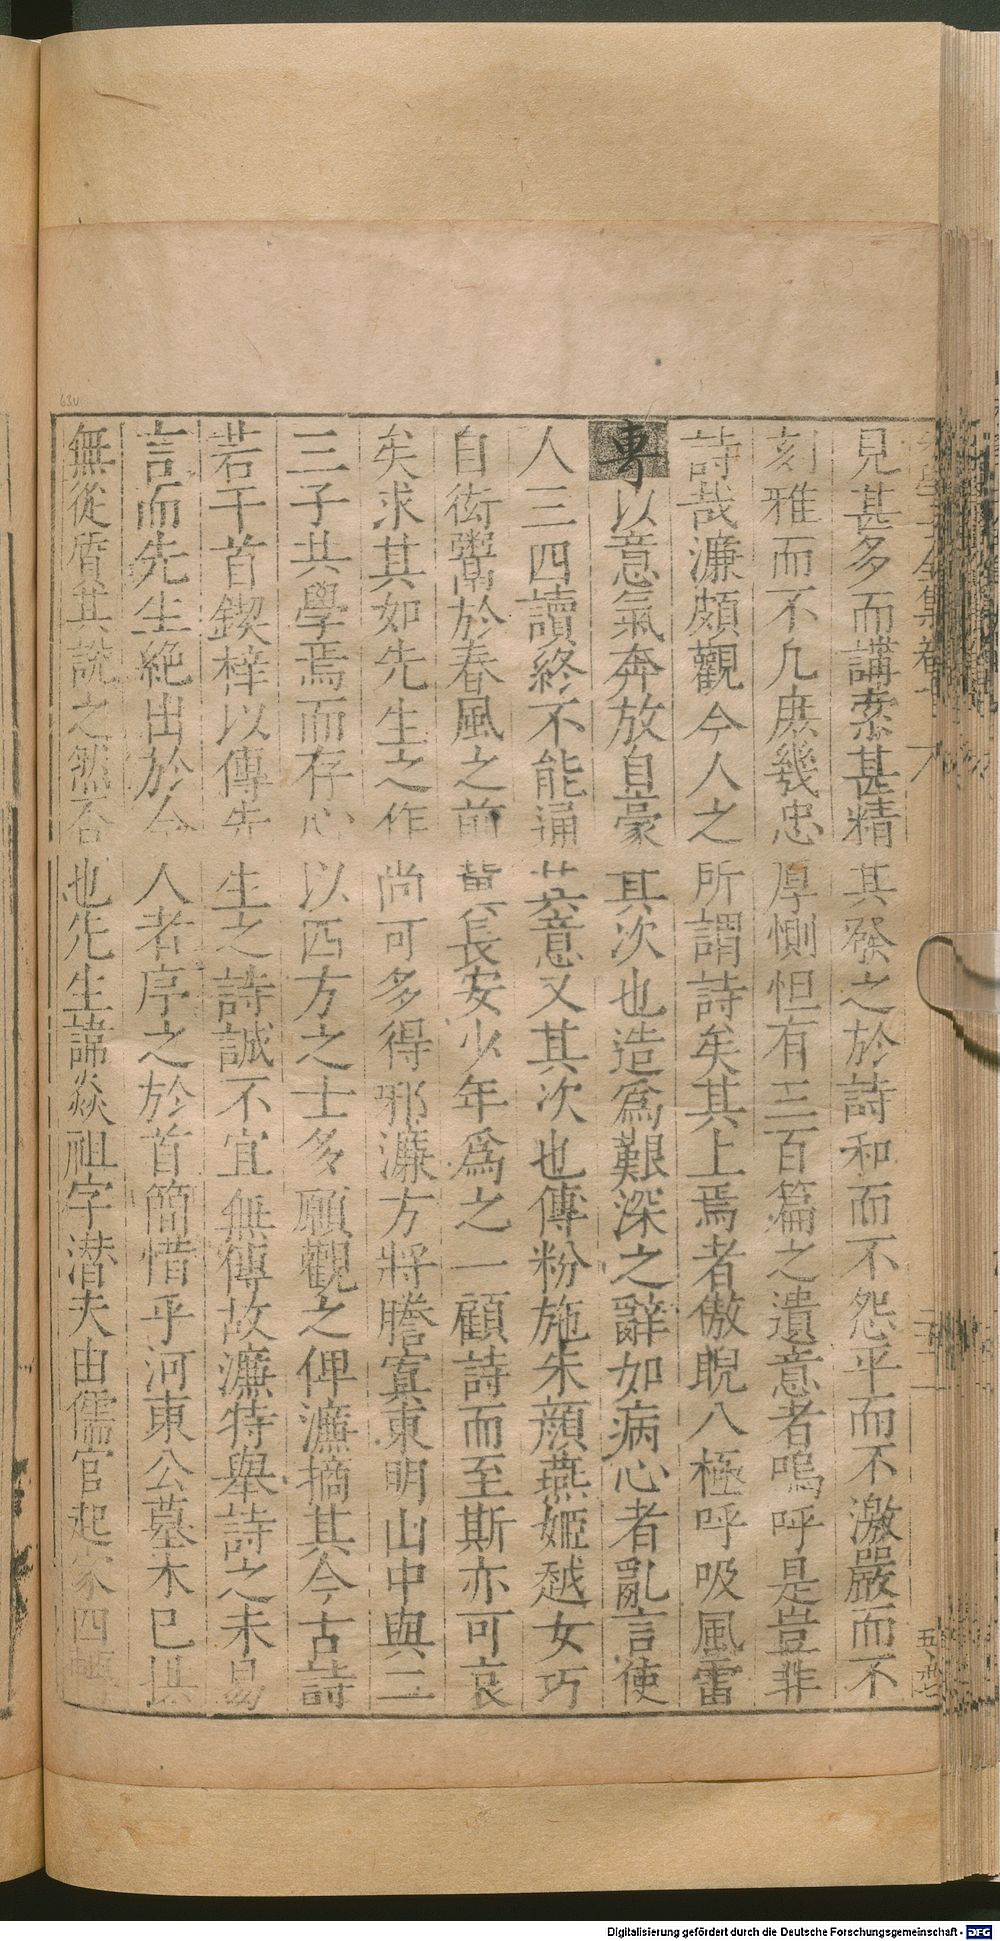 見甚多而講索甚精其發之於詩和而不怨平而不激嚴而不
刻雅而不凡庶幾忠厚惻怛有三百篇之遺意者嗚呼是豈非
詩哉濂頗觀今人之所謂詩矣其上焉者傲睨八極呼吸風雷
專以意氣奔放自豪其次也造爲艱深之辭如病心者亂言使
人三四讀終不能通其意又其次也傳粉施朱顔燕姬越女巧
自衒鬻於春風之前冀長安少年爲之一顧詩而至斯亦可哀
矣求其如先生之作尚可多得邪濂方將謄寘東明山中與二
三子共學焉而存心以四方之士多願觀之俾濂摘其今古詩
若干首鍥梓以傳先生之詩誠不宜無傳故濂特舉詩之未易
言而先生絶出於今人者序之於首簡惜乎河東公墓木已拱
無從質其説之然否也先生諱焱祖字潜夫由儒官起家四
63v
Digitalisierung gefördert durch die Deutsche Forschungsgemeinschaft - DFG